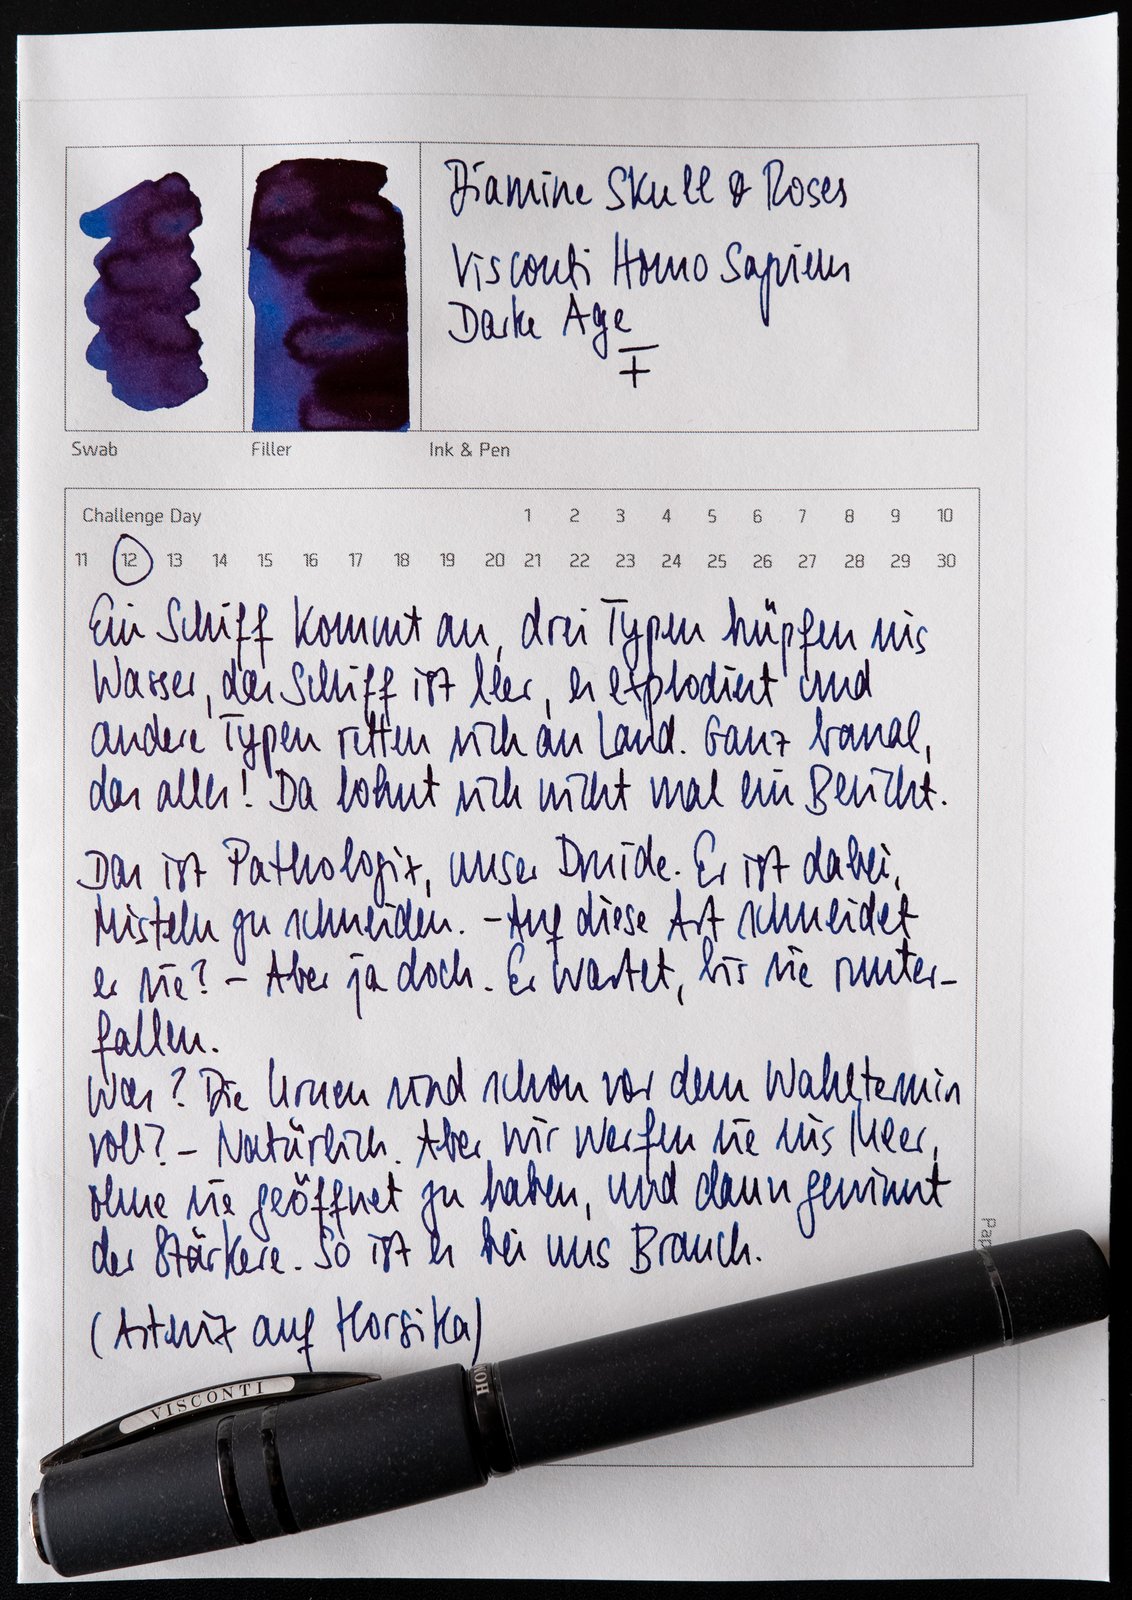 Diamine Skull & Roses
Visconti Homo Sapiens
Dark Age
F
Swab Filler Ink & Pen
Challenge Day 1 2 3 4 5 6 7 8 9 10
11 12 13 14 15 16 17 18 19 20 21 22 23 24 25 26 27 28 29 30
Ein Schiff kommt an, drei Typen hüpfen ins
Wasser, das Schiff ist leer, es explodiert und
andere Typen retten sich an Land. Ganz banal,
das alles! Da lohnt sich nicht mal ein Bericht.
Das ist Pathologix, unser Druide. Er ist dabei,
Misteln zu schneiden. – Auf diese Art schneidet
er sie? – Aber ja doch. Er wartet, bis sie runter-
fallen.
Was? Die Urnen sind schon vor dem Wahltermin
voll? – Natürlich. Aber wir werfen sie ins Meer,
ohne sie geöffnet zu haben, und dann gewinnt
der Stärkere. So ist es bei uns Brauch.
(Asterix auf Korsika)
Pap
VISCONTI
HOM